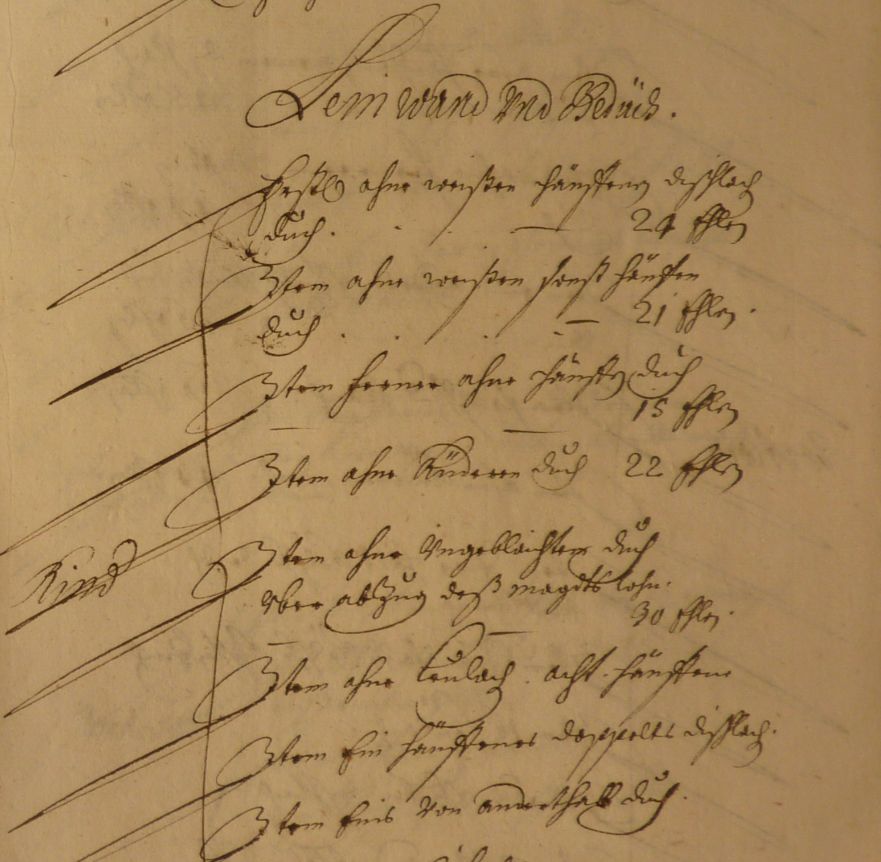 Leinwand Vnd Bedüch.
Erstl ahne weißen hänffenen dischlach
duch. . . — 24 Ehlen
Item ahne weißen sonst hänffen
duch . . . . — 21 Ehlen.
Item ferner ahne hänffen duch
— — 15 Ehlen
Item ahne Küderen duch 22 Ehlen
Kind
Item ahne Vngeblaichtem duch
Vber abZug deß magdts lohn.
— — 30 Ehlen.
Item ahne Leulach. acht. hänffene
Item Ein hänffenes doppeltes dischlach.
Item Eins Von anderthalb duch.